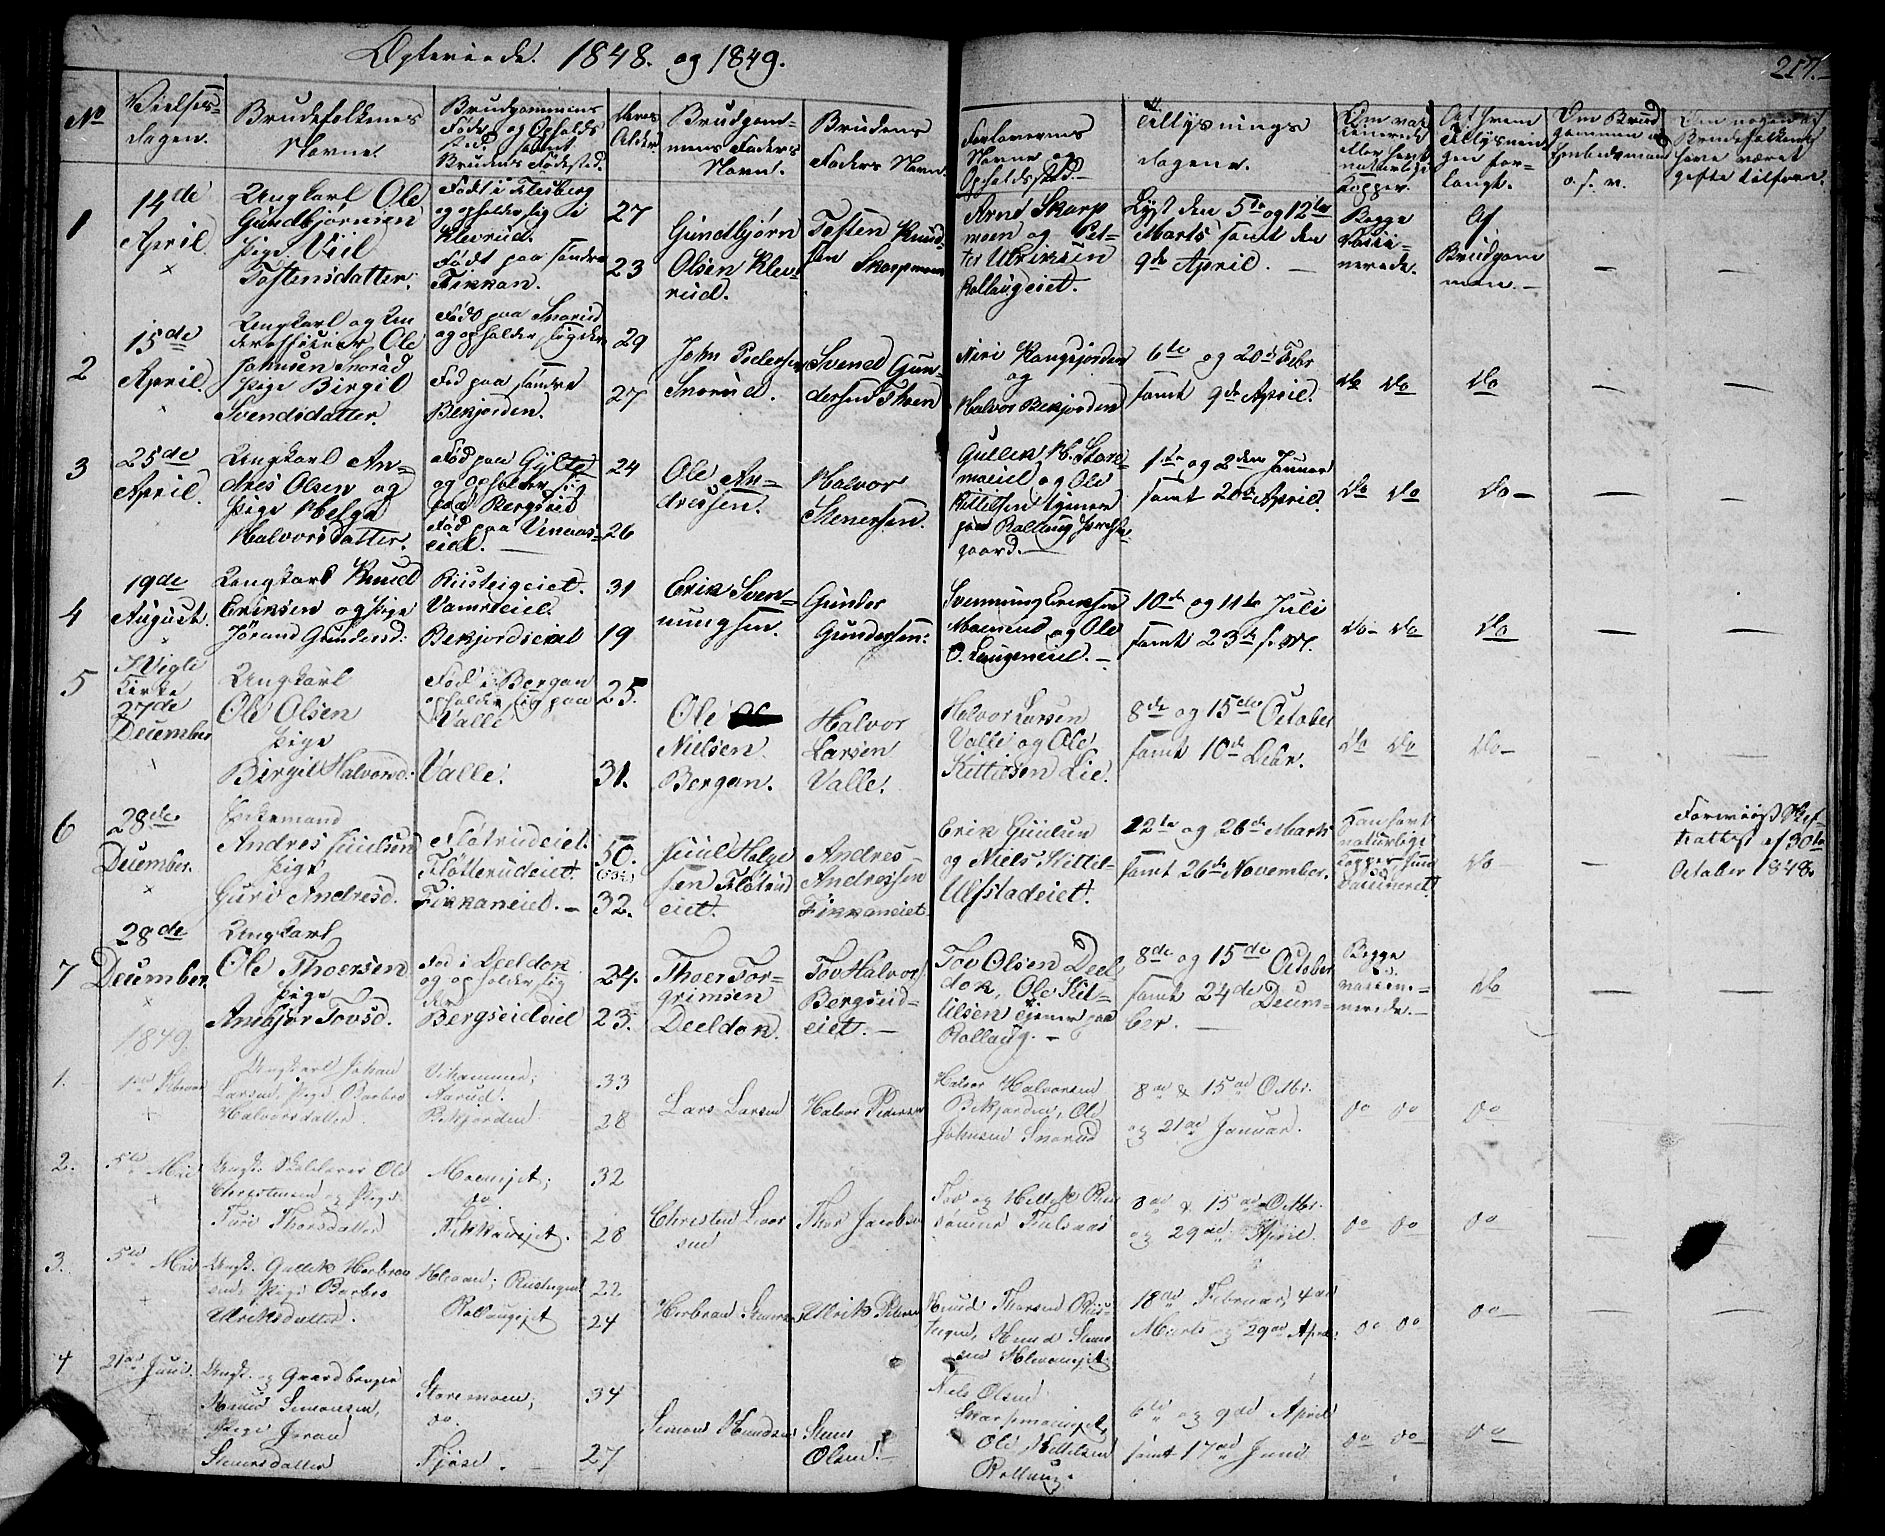 Ægteviede. 1848. og 1849.
217.
No
Vielses-
dagen.
Brudefolkenes
Navne.
Brudgommens
Føde og Opholds
sted, samt
Brudens Fødested.
Deres
Alder.
Brudgom-
mens Faders
Navn.
Brudens
Faders Navn.
Forlovernes
Navne og
Opholdssted
Tillysnings
dagene.
Om vac
cinerede
eller havt
naturlige
Kopper.
Af hvem
Tillysnin
gen for-
langt.
Om Brud
gommen er
Embedsmand
o. s. v.
Om nogen af
Brudefolkene
have været
gifte tilforn.
1
14de
April.
Ungkarl Ole
Gundbjørnsen
Pige Viil
Tostensdatter.
Født i Flesberg
og opholder sig i
Klevrud.
Født paa søndre
Fikkan.
27
23
Gundbjørn
Olsen Klev
rud.
Tosten Knud
sen Skarpmoen
Arne Skarp
moen og Pet-
ter Ulriksen
Rollaugeiet.
Lyst den 5te og 12te
Marts samt den
9de April.
Begge
Vacci-
nerede.
Af
Brudgom
men.
2
15de
April.
Ungkarl og Un
derofficier Ole
Johnsen Snarud
Pige Birgit
Svendsdatter.
Født paa Snarud
og opholder sig der
Fød paa søndre
Bekjorden.
29
27
John Pedersen
Snarud.
Svend Gun-
dersen Thoen
Niri Kongsjorden
og
Halvor Bekjorden
6te og 20de Febr
samt 9de April.
do do
do
3
25de
April.
Ungkarl An-
dres Olsen og
Pige Helga
Halvorsdatter.
Fød paa Gylte
og opholder sig
paa Bergseid
Fød paa Vinaas-
eiet.
24
26
Ole An-
dressen.
Halvor
Stenersen.
Gullik H. Store-
moeiet og Ole
Kittilsen tjener
paa Rollaug Præste
gaard.
1te og 2den Januar
samt 20de April.
do do
do
4
19de
August.
Ungkarl Knud
Eriksen og Pige
Jørand Gundersd:
Riisteigeiet.
Vamreiet
Bekjordseiet
31
19
Erik Sven-
nungsen.
Gunder
Gundersen:
Svennung Eriksen
Moeneiet og Ole
O. Laugeneiet.
10de og 11te Juli
samt 23de s. M.
do do
do
5
I Vigle
Kirke
27de
December
Ungkarl
Ole Olsen
Pige
Birgit Halvorsd:
Fød i Bergan
opholder sig paa
Valle
Valle.
25.
31.
Ole
Nielsen
Bergan.
Halvor
Larsen
Valle.
Halvor Larsen
Valle og Ole
Kittilsen Lie.
8de og 15de October
samt 10de Debr.
do do
do
6
28de
December.
Enkemand
Andres Juulsen
Pige
Guri Andresd.
Fløtrudeiet.
Fløtterudeiet.
Fikkaneiet.
50.
32.
Juul Helge
sen Fløtrud
eiet.
Andres
Andressen
Fikkaneiet
Erik Juulsen
og Niels Kittil-
Ulfstadeiet.
12te og 26de Marts
samt 26de November.
Han havt
naturlige
Kopper, hun
Vaccineret.
do
Foreviist Skif-
teattest af 30te
October 1848.
7
28de
December.
Ungkarl
Ole Thoersen
Pige
Ambjør Tovsd.
Fød i Deeldok
og opholder sig
der
Bergseideiet
24.
23.
Thoer Tor-
grimsen
Deeldok.
Tov Halvors
Bergseid-
eiet.
Tov Olsen Deel
dok, Ole Kit-
tilsen tjener paa
Rollaug.
8de og 15de October
samt 24de Decem-
ber.
Begge
vacci-
nerede.
do
1849.
1.
Ungkarl Johan
Larsen, Pige Barbro
Halvorsdatter.
Vikammen;
Aarud.
Bekjorden
33
28
Lars Larsen
Halvor Pedersen
Halvor Halvorsen
Bekjorden, Ole
Johnsen Snarud
8de & 15de Octbr.
og 21de Januar.
do do
do
2.
5te Mai
Ungk. Skolelærer Ole
Christensen og Pige
Turi Thorsdatter
Moeneiet;
do.
Fikkaneiet.
32
28
Christen Iver
sen
Thor Jacobsen
8de & 15de Octbr.
og 29de April.
do do
do
3.
5te Mai
Ungk. Gullik Herbran
sen, Pige Barbro
Ulriksdatter.
Rollaugeiet
22
24
Herbran Stenersen
Ulrik Pedersen
Knud Thorsen Riis-
teigen, Knud Stener
sen
18de Februar, 4de
Marts og 29de April
do do
do
4
21de Juni.
Ungk. og Gaardbruger
Knud Simonsen,
Pige Jøran
Stenersdatter
Storemoen;
do.
Fjøse.
34
27
Simon Knudsen
Stener
Olsen.
Nils Olsen
Skarpmoeneiet,
Ole Kittilsen
Rollaug.
6te og 9de April
samt 17de Juni
do do
do